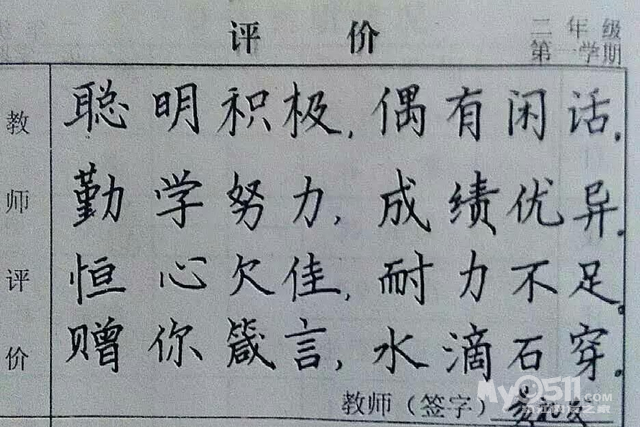 评价
二年级
第一学期
教师评价
聪明积极,偶有闲话.
勤学努力,成绩优异.
恒心欠佳,耐力不足.
赠你箴言,水滴石穿.
教师(签字)
My0511.com